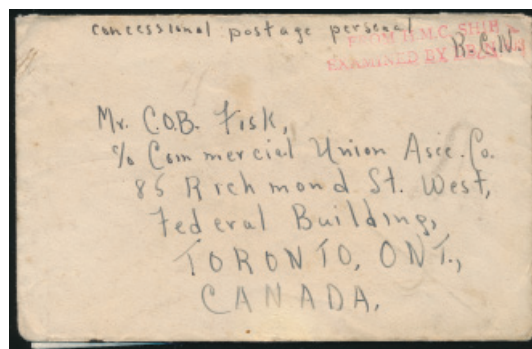 concessional postage personal
FROM H.M.C. SHIP
R.C.N.
EXAMINED BY
Mr. C.O.B. Fisk,
% Commercial Union Asce. Co.
85 Richmond St. West,
Federal Building,
TORONTO, ONT.,
CANADA.